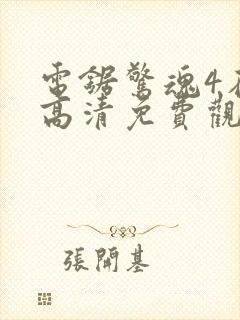 電鋸驚魂4在
高清免費觀
張開基